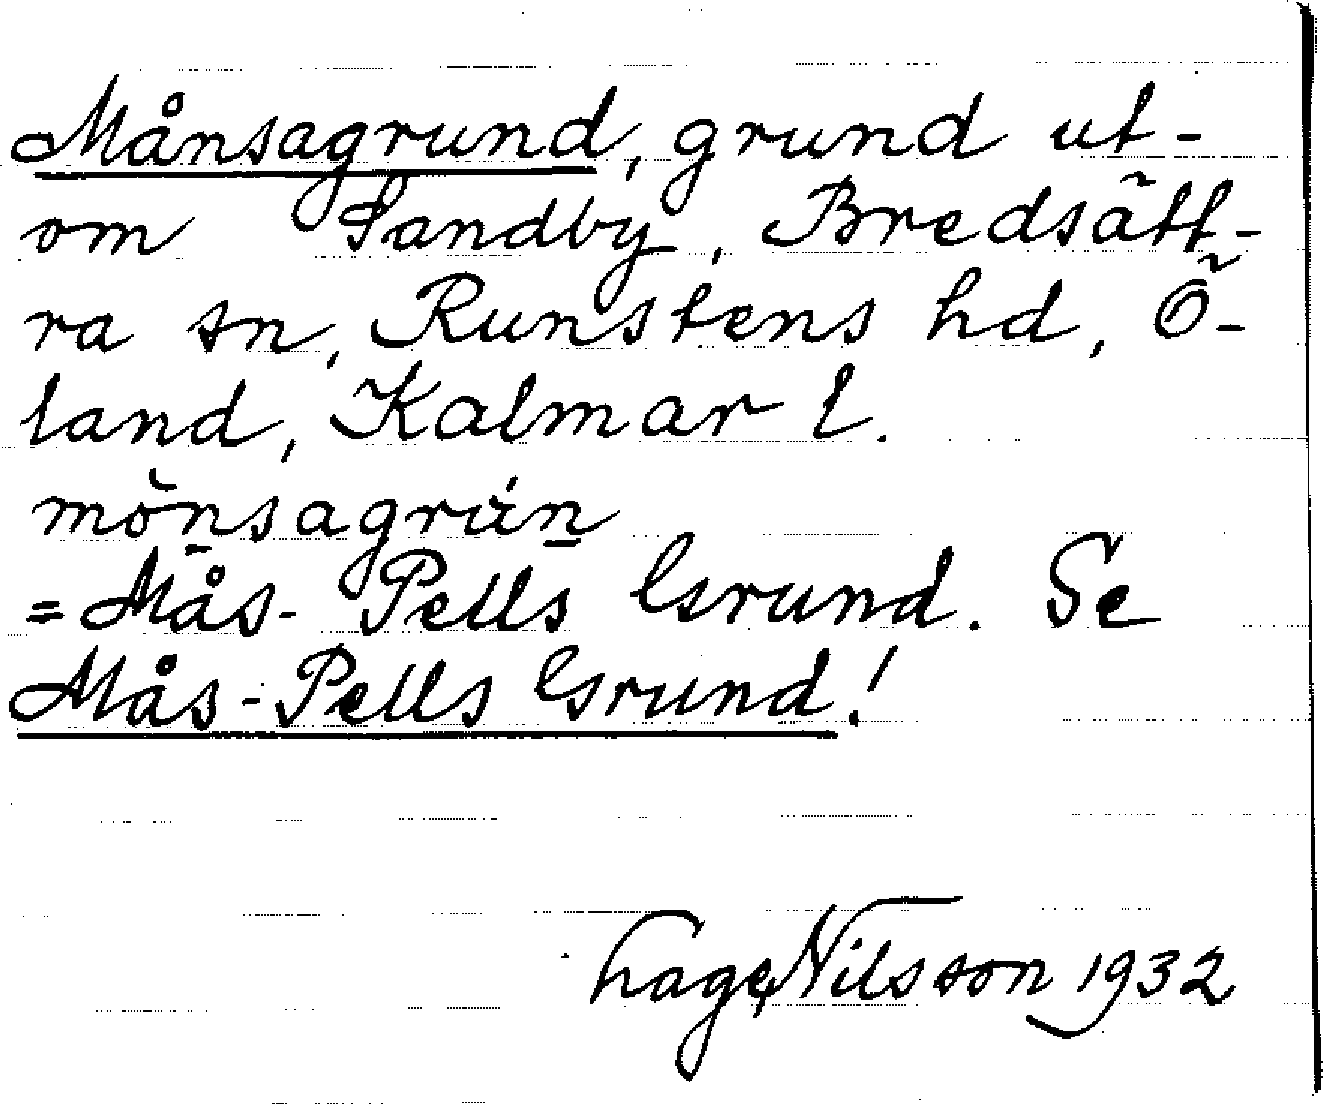 Månsagrund, grund ut-
om Sandby, Bredsätt-
ra sn, Runstens hd, Ö-
land, Kalmar l.
mönsagrun
= Mås-Pells Grund. Se
Mås-Pells Grund!
Nilsson 1932